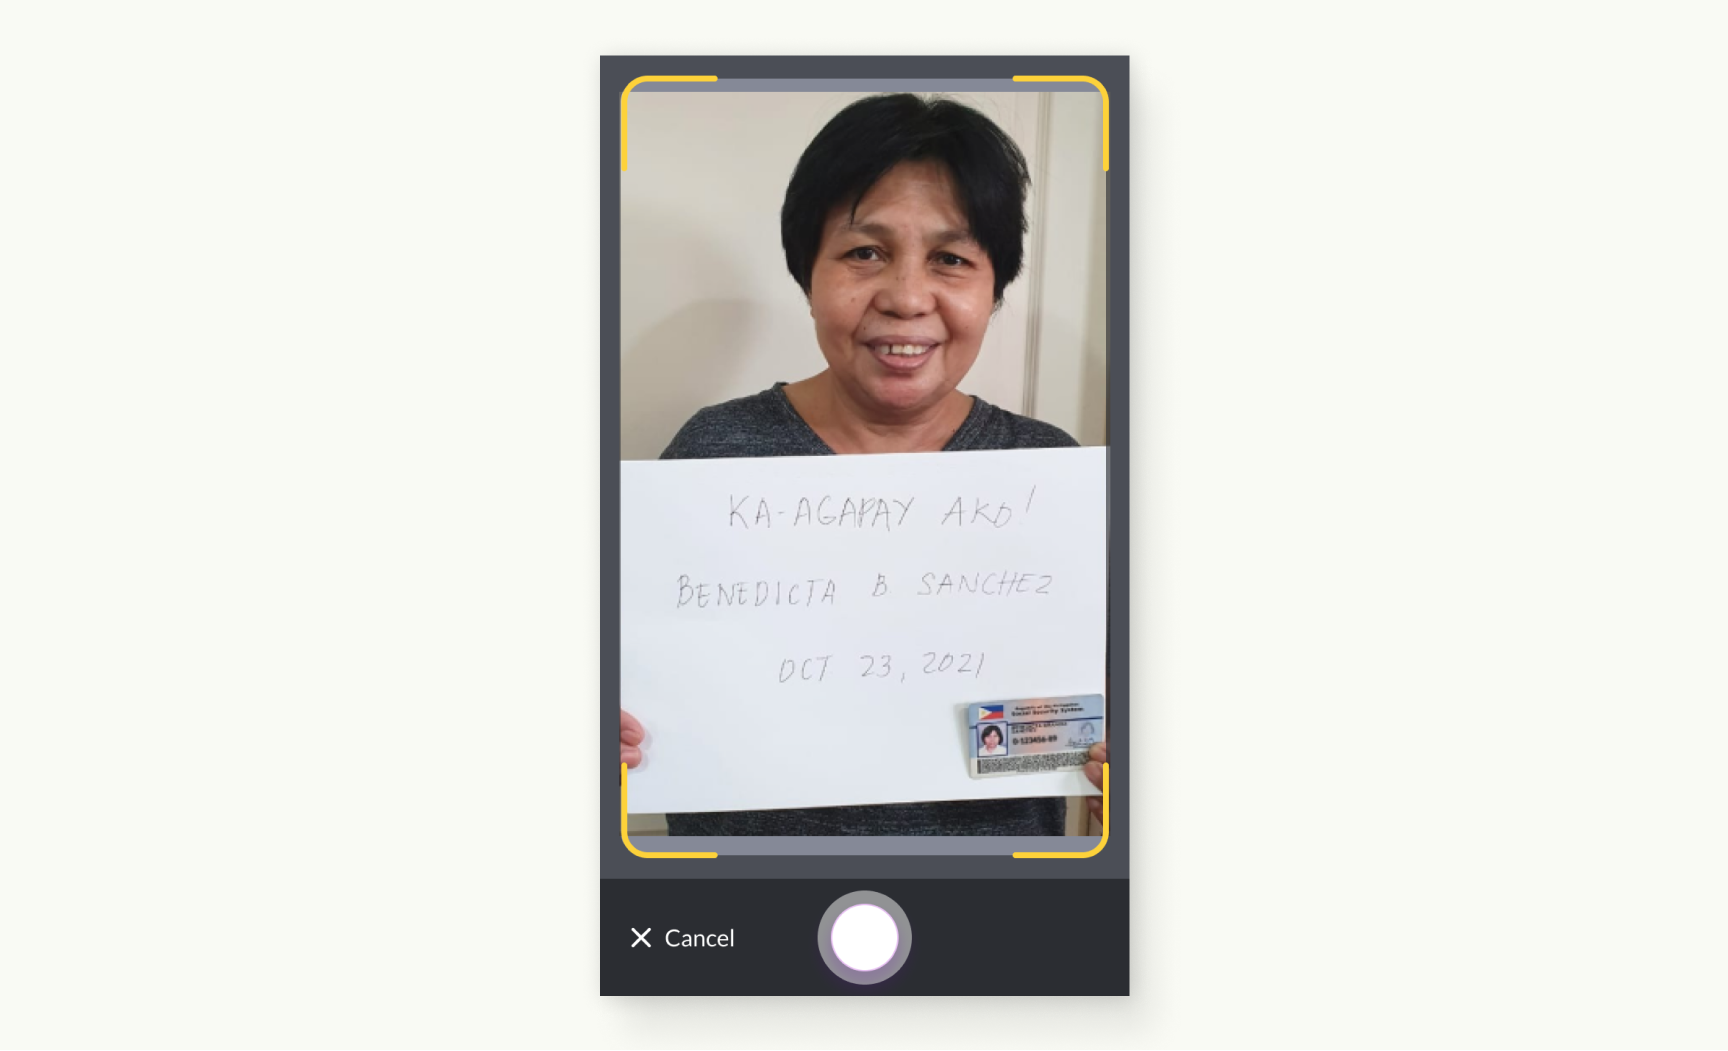 KA-AGAPAY AKO!
BENEDICTA B SANCHEZ
OCT 23, 2021
Republic of the Philippines
Social Security System
SANCHEZ
0-123456-89
Cancel